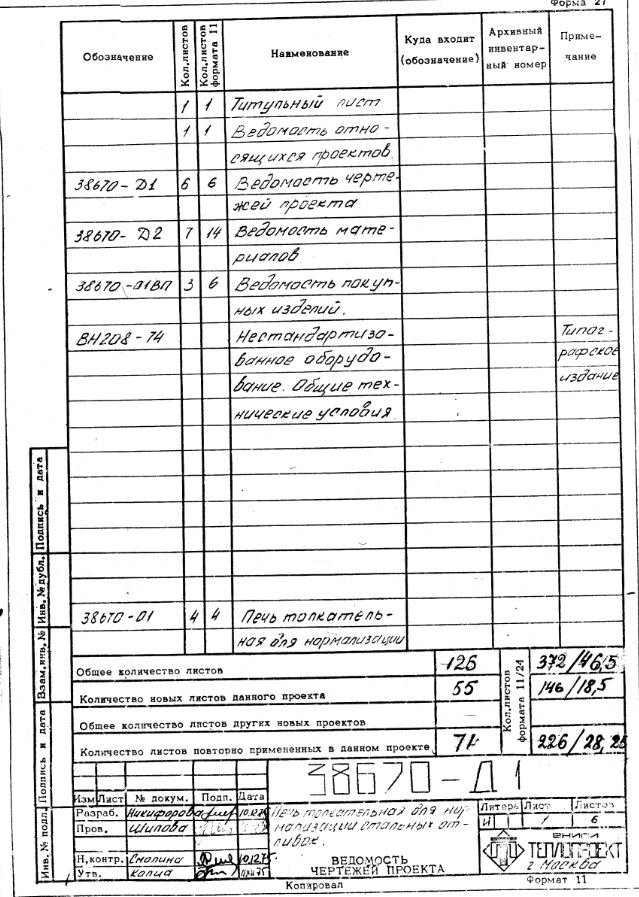 Форма 27
Обозначение Кол.листов Кол.листов формата 11 Наименование Куда входит (обозначение) Архивный инвентарный номер Примечание
1 1 Титульный лист
1 1 Ведомость отно-
сящихся проектов.
38670-Д1 6 6 Ведомость черте-
жей проекта
38670-Д2 7 14 Ведомость мате-
риалов
38670-01ВП 3 6 Ведомость покуп-
ных изделий.
ВН208-74 Нестандартизо- Типог-
ванное оборудо- рафское
вание. Общие тех- издание
нические условия
38670-01 4 4 Печь толкатель-
ная для нормализации
Общее количество листов 126 372/46,5
Количество новых листов данного проекта 55 146/18,5
Кол.листов формата 11/24
Общее количество листов других новых проектов —
Количество листов повторно примененных в данном проекте 71 226/28,25
38670-Д1
Изм Лист № докум. Подп. Дата
Разраб. Никифорова 10.12.75
Пров. Шилова
Н.контр. Смолина 10.12.75
Утв. Копиа
Печь толкательная для нор-
мализации стальных от-
ливок.
ВЕДОМОСТЬ
ЧЕРТЕЖЕЙ ПРОЕКТА
Литера Лист Листов
И 1 6
ВНИПИ
ТЕПЛОПРОЕКТ
г Москва
Копировал Формат 11
Инв. № подл. Подпись и дата Взам.инв. № Инв. № дубл. Подпись и дата